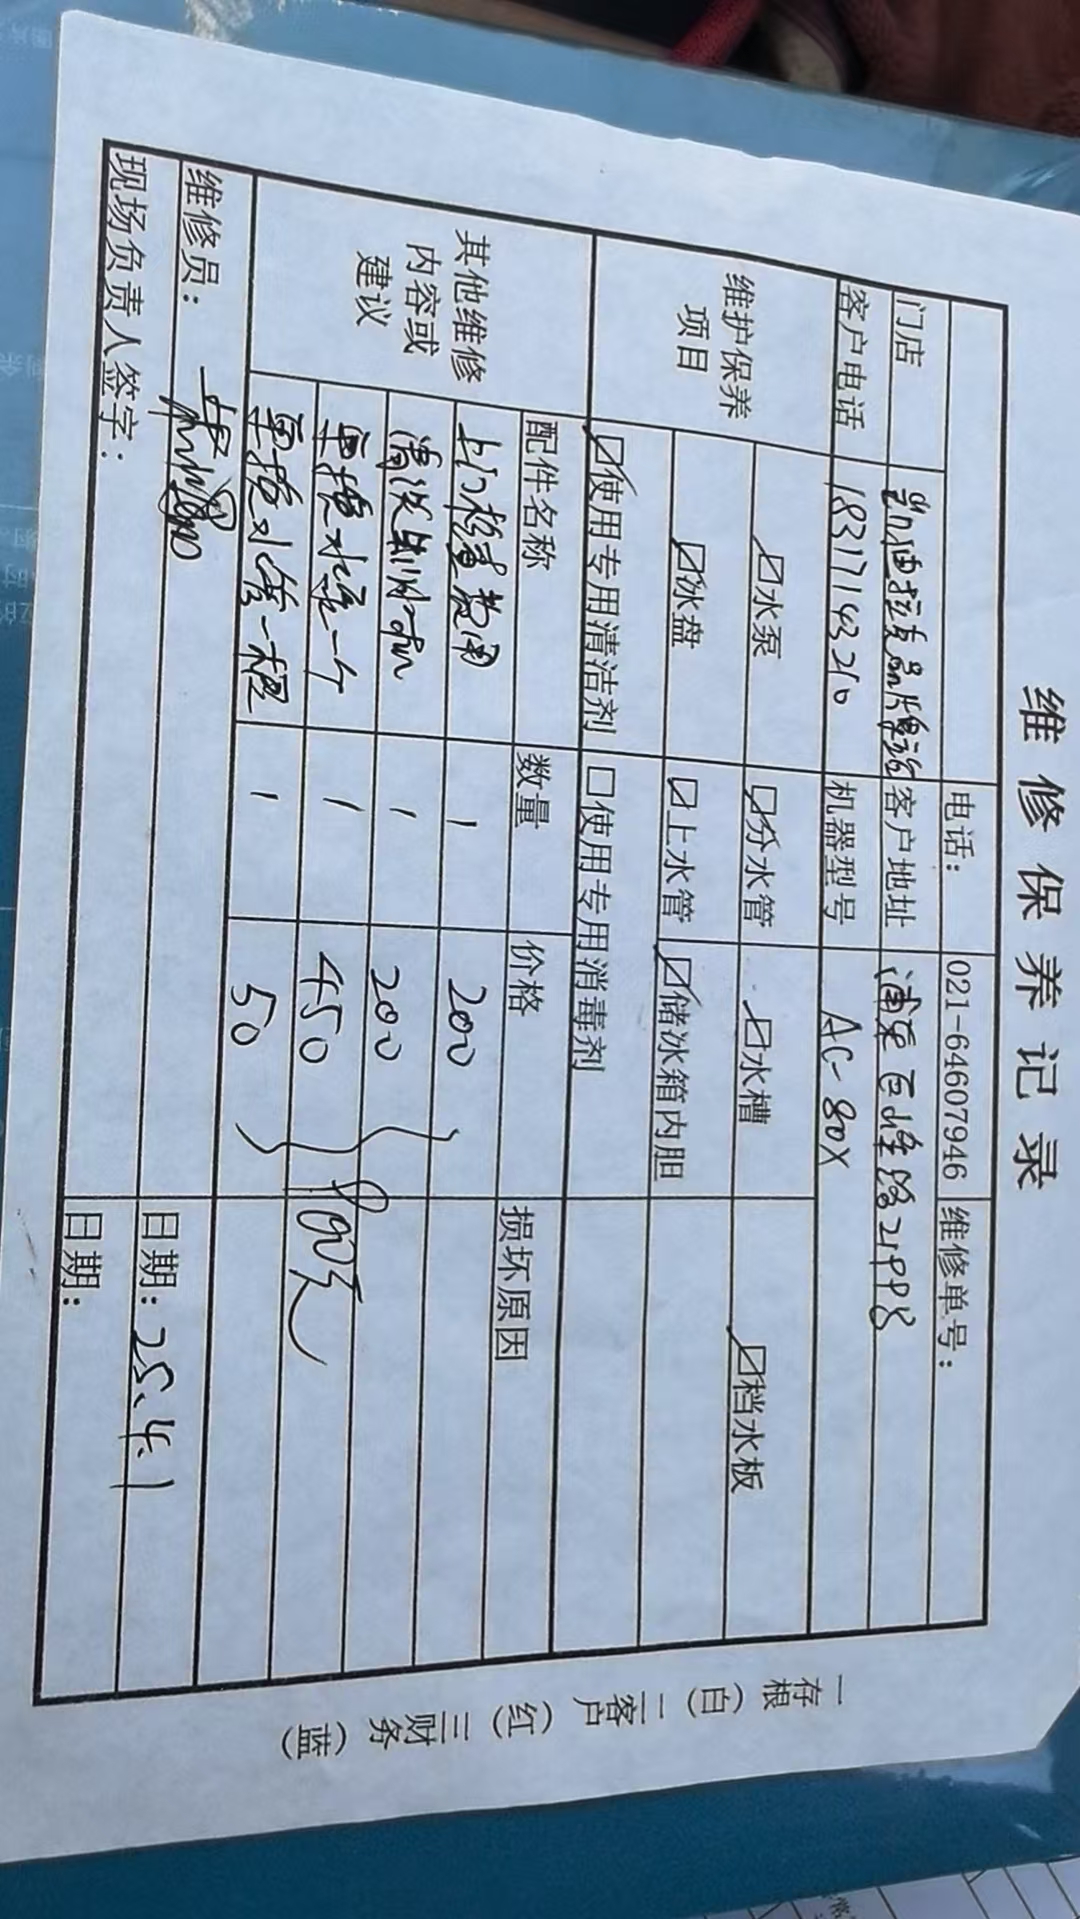 维修保养记录
电话： 021-64607946 维修单号：
门店 凯迪拉克品牌 客户地址 浦东巨峰路2199号
客户电话 18317143210 机器型号 AC-80X
维护保养项目
☑水泵 ☑分水管 ☑水槽 ☑档水板
☑冰盘 ☑上水管 ☑储冰箱内胆
☑使用专用清洁剂 ☐使用专用消毒剂
其他维修内容或建议
配件名称 数量 价格 损坏原因
上门检查费用 1 200
清洗制冰机 1 200
更换水泵一个 1 450
更换水管一根 1 50
900元
维修员： 日期：25.4.1
现场负责人签字： 日期：
一存根（白）二客户（红）三财务（蓝）